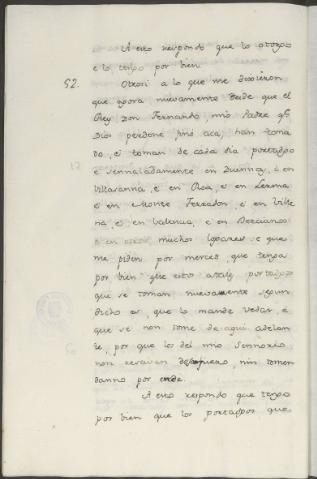 A esto respondo que lo otorgo
e lo tengo por bien.
52. Otrosi a lo que me dixieron
que agora nuevamente desde que el
Rey Don Fernando, mio Padre q.e
Dios perdone finó acá, han toma
do, é toman de cada dia portadgo
é sennaladamente en Duennas, é en
Villasanna, é en Roa, é en Lerma
é en Monte Ferrador, é en Ville
na, é en Valencia, é en Bercianos
é en otros muchos logares é que
me piden por merced, que tenga
por bien que estos atales portadgos
que se toman nuevamente segun
dicho es, que lo mande vedar, é
que se non tome de aqui adelan
te, por que los del mio Sennorio
non resciban desafuero, nin tomen
danno por ende.
A esto respondo que tengo
por bien que los portadgos que